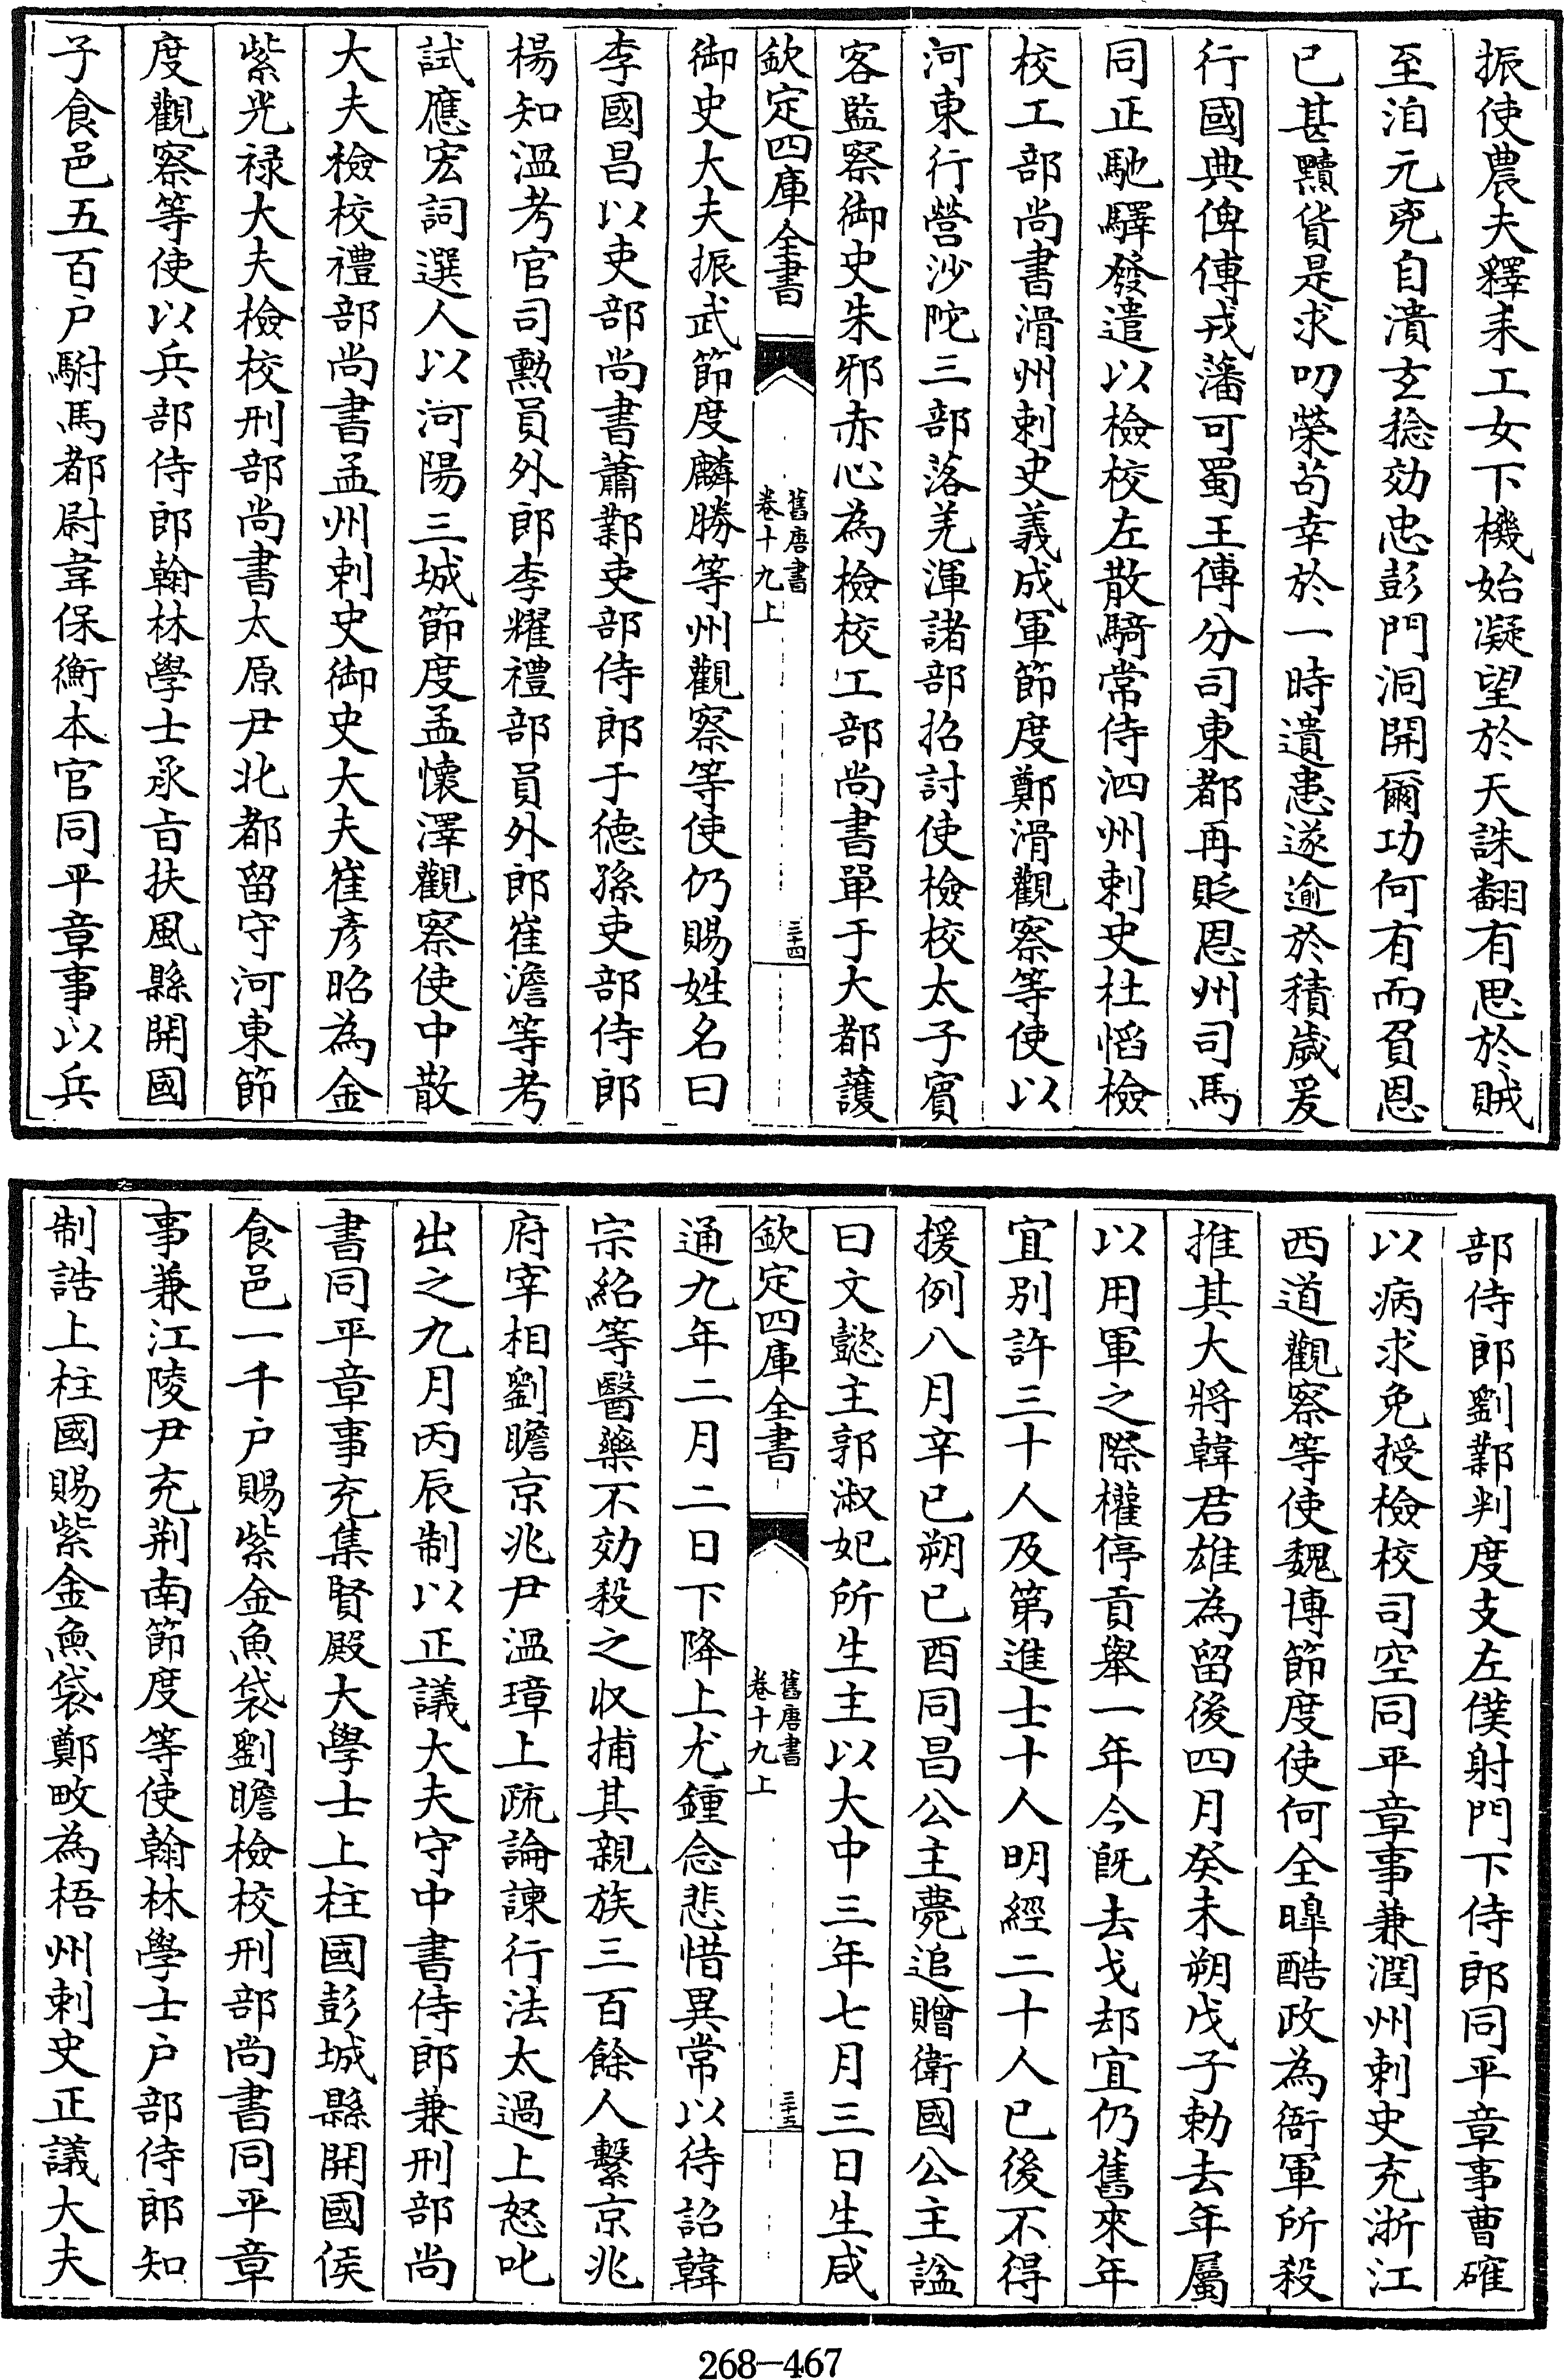 振使農夫釋耒工女下機始凝望於天誅翻有思於賊
至洎元兇自潰玄稔効忠彭門洞開爾功何有而負恩
已甚黷貨是求叨榮茍幸於一時遺患遂逾於積歲爰
行國典俾傅戎藩可蜀王傅分司東都再貶恩州司馬
同正馳驛發遣以檢校左散騎常侍泗州刺史杜慆檢
校工部尚書滑州刺史義成軍節度鄭滑觀察等使以
河東行營沙陀三部落羌渾諸部招討使檢校太子賓
客監察御史朱邪赤心為檢校工部尚書單于大都護
欽定四庫全書
舊唐書
卷十九上
三十四
御史大夫振武節度麟勝等州觀察等使仍賜姓名曰
李國昌以吏部尚書蕭鄴吏部侍郎于德孫吏部侍郎
楊知溫考官司勳員外郎李耀禮部員外郎崔澹等考
試應宏詞選人以河陽三城節度孟懷澤觀察使中散
大夫檢校禮部尚書孟州刺史御史大夫崔彥昭為金
紫光祿大夫檢校刑部尚書太原尹北都留守河東節
度觀察等使以兵部侍郎翰林學士承旨扶風縣開國
子食邑五百戶駙馬都尉韋保衡本官同平章事以兵
部侍郎劉鄴判度支左僕射門下侍郎同平章事曹確
以病求免授檢校司空同平章事兼潤州刺史充浙江
西道觀察等使魏博節度使何全皞酷政為衙軍所殺
推其大將韓君雄為留後四月癸未朔戊子勅去年屬
以用軍之際權停貢舉一年今既去戈却宜仍舊來年
宜別許三十人及第進士十人明經二十人已後不得
援例八月辛巳朔己酉同昌公主薨追贈衛國公主諡
曰文懿主郭淑妃所生主以大中三年七月三日生咸
欽定四庫全書
舊唐書
卷十九上
三十五
通九年二月二日下降上尤鍾念悲惜異常以待詔韓
宗紹等醫藥不効殺之收捕其親族三百餘人繫京兆
府宰相劉瞻京兆尹溫璋上疏論諫行法太過上怒叱
出之九月丙辰制以正議大夫守中書侍郎兼刑部尚
書同平章事充集賢殿大學士上柱國彭城縣開國侯
食邑一千戶賜紫金魚袋劉瞻檢校刑部尚書同平章
事兼江陵尹充荆南節度等使翰林學士戶部侍郎知
制誥上柱國賜紫金魚袋鄭畋為梧州刺史正議大夫
268-467